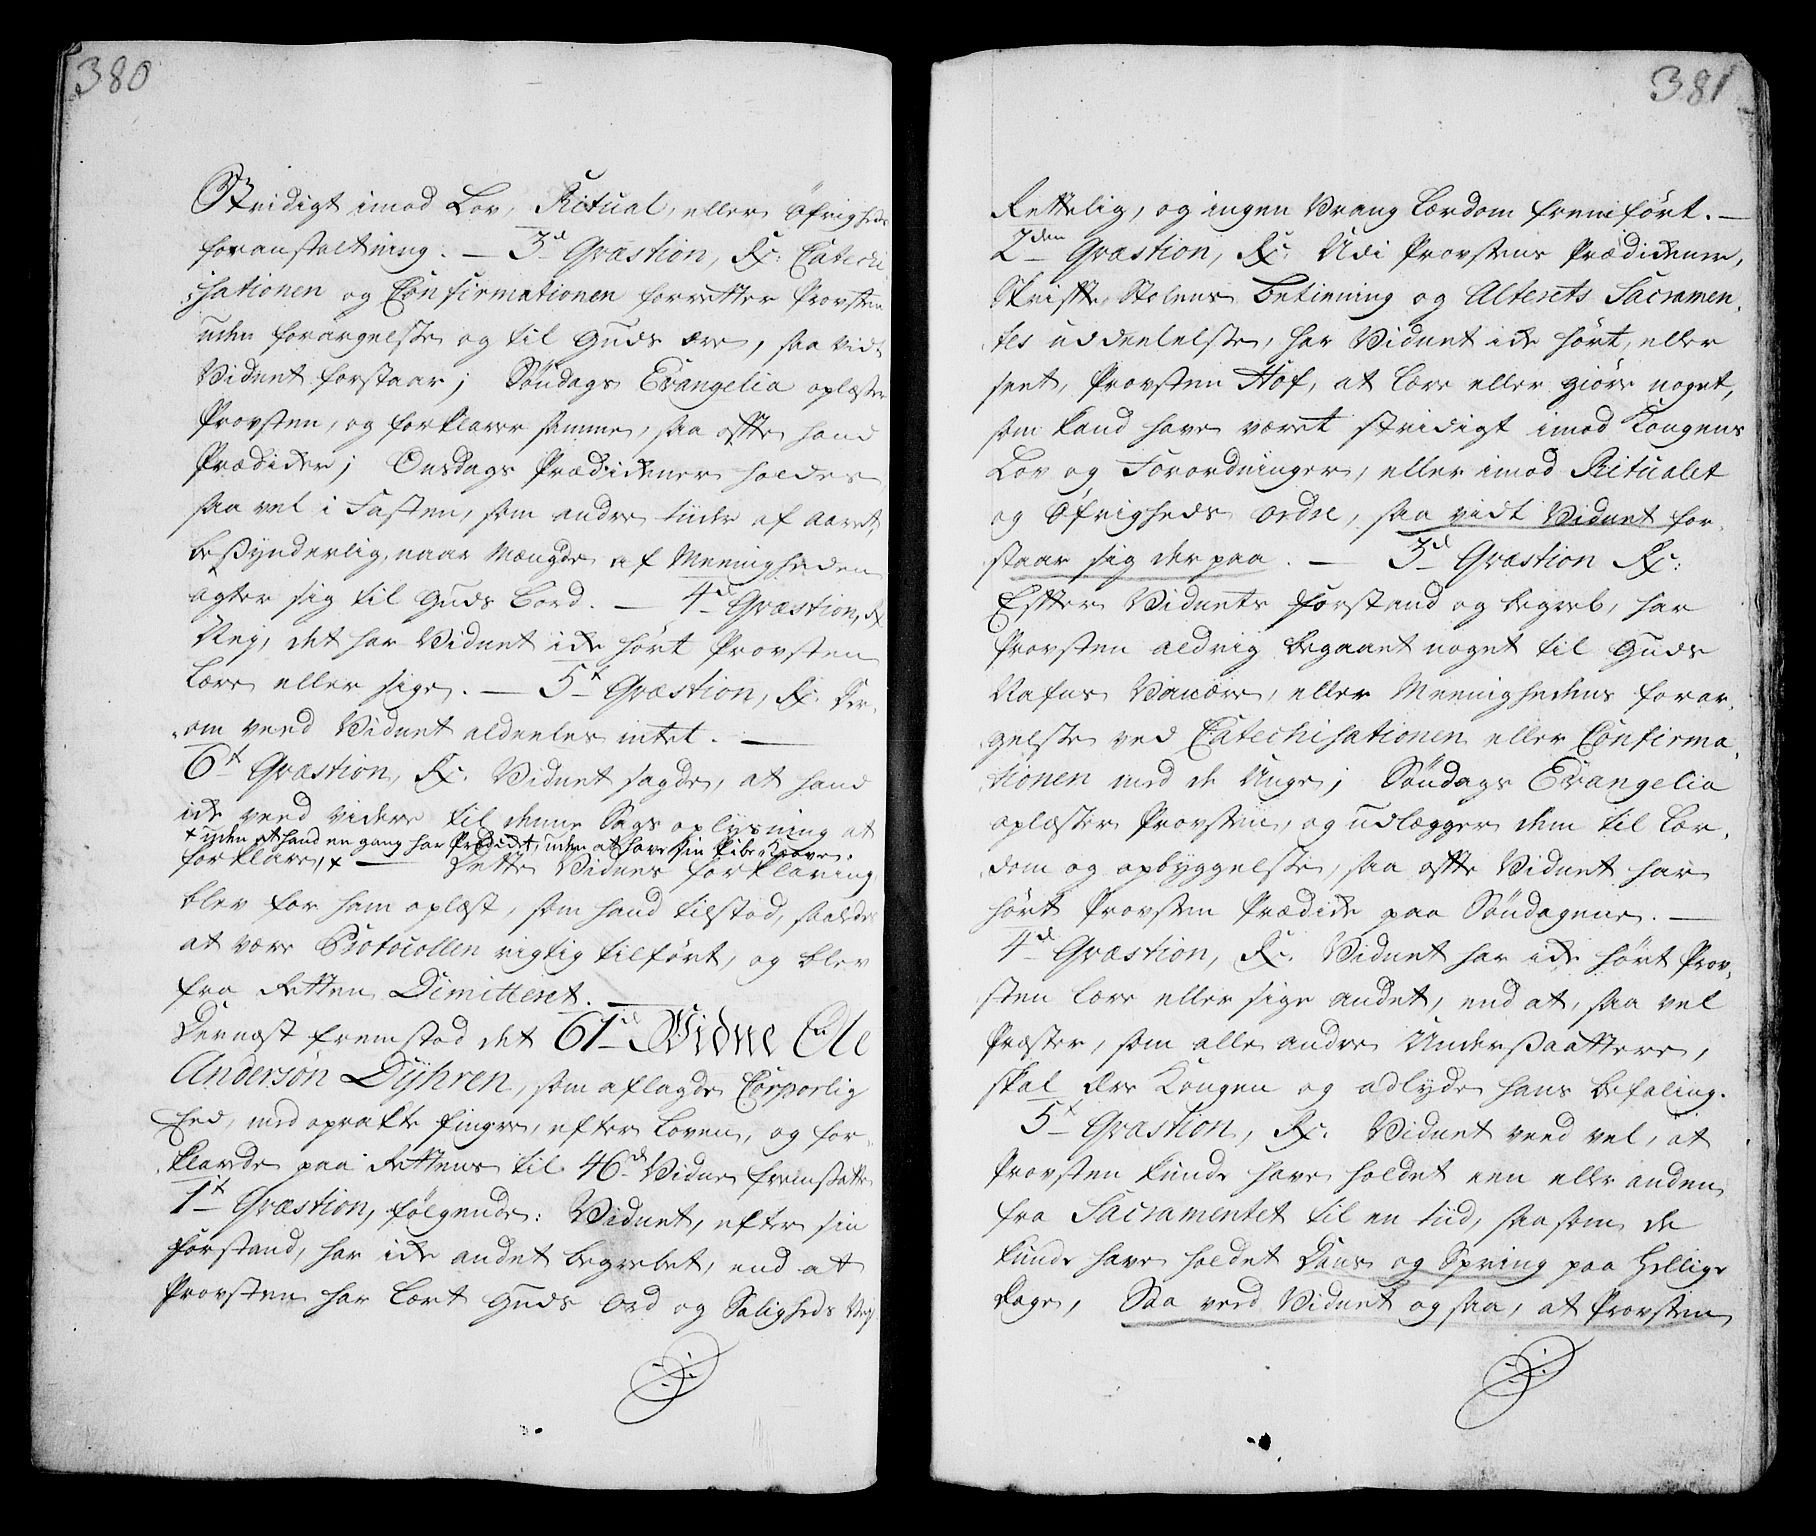 380
Stridigt imod Lov, Ritual, eller Øfrigheds
foranstaltning. — 3d Qvæstion, Rx: Catechi
sationen og Confirmationen forretter Provsten
uden forargelse og til Guds ære, saa vidt
Vidnet forstaar; Søndags Evangelia oplæser
Provsten, og forklarer samme, saa ofte hand
Prædiker; Onsdags Prædikener holdes
saa vel i Fasten, som andre tiider af aaret,
besynderlig, naar Mængde af Meenigheden
agter sig til Guds Bord. — 4d Qvæstion, Rx
Nej, det har Vidnet ike hørt Provsten
lære eller sige. — 5t Qvæstion, Rx. Der-
om veed Vidnet aldeeles intet. —
6t Qvæstion, Rx. Vidnet sagde, at hand
ike veed videre til denne Sags oplysning at
+ uden at hand en gang har Prædiket, uden at have sin Pibe Krave.
forklare, + — Dette Vidnes forklaring
blev for ham oplæst, som hand tilstod, saaledes
at være Protocollen rigtig tilført, og blev
fra Retten Dimitteret. —
Dernæst fremstod det 61de Vidne Ole
Andersøn Dyhren, som aflagde Corporlig
Eed, med oprakte fingre, efter Loven, og for-
klarede paa Rettens til 46d Vidne fremsatte
1t Qvæstion, følgende: Vidnet, efter sin
forstand, har ike andet begrebet, end at
Provsten har lært Guds Ord og Saligheds Vej
381
Rettelig, og ingen Vrang Lærdom fremført. —
2den Qvæstion, Rx. Udi Provstens Prædikener,
Skrifte Stolens betiening og Alterets Sacramen-
tes uddeelelse, har Vidnet ike hørt, eller
seet, Provsten Hof, at lære eller giøre noget,
som kand have været stridigt imod Kongens
Lov og Forordninger, eller imod Ritualet
og Øfrigheds ordre, saa vidt Vidnet for-
staar sig der paa. — 3d Qvæstion Rx:
Efter Vidnets forstand og begreb, har
Provsten aldrig begaaet noget til Guds
Nafns Vanære, eller Meenighedens forar-
gelse ved Catechisationen eller Confirma-
tionen med de Unge; Søndags Evangelia
oplæser Provsten, og udlægger dem til Lær-
dom og opbyggelse, saa ofte Vidnet har
hørt Provsten Prædike paa Søndagene. —
4d Qvæstion, Rx. Vidnet har ike hørt Prov-
sten lære eller sige andet, end at, saa vel
Præster, som alle andre Undersaattere,
skal ære Kongen og adlyde hans befaling.
5t Qvæstion, Rx. Vidnet veed vel, at
Provsten kunde have holdet een eller anden
fra Sacramentet til en tiid, saasom de
kunde have holdet Dans og Spring paa Hellige
Dage, Saa veed Vidnet og saa, at Provsten